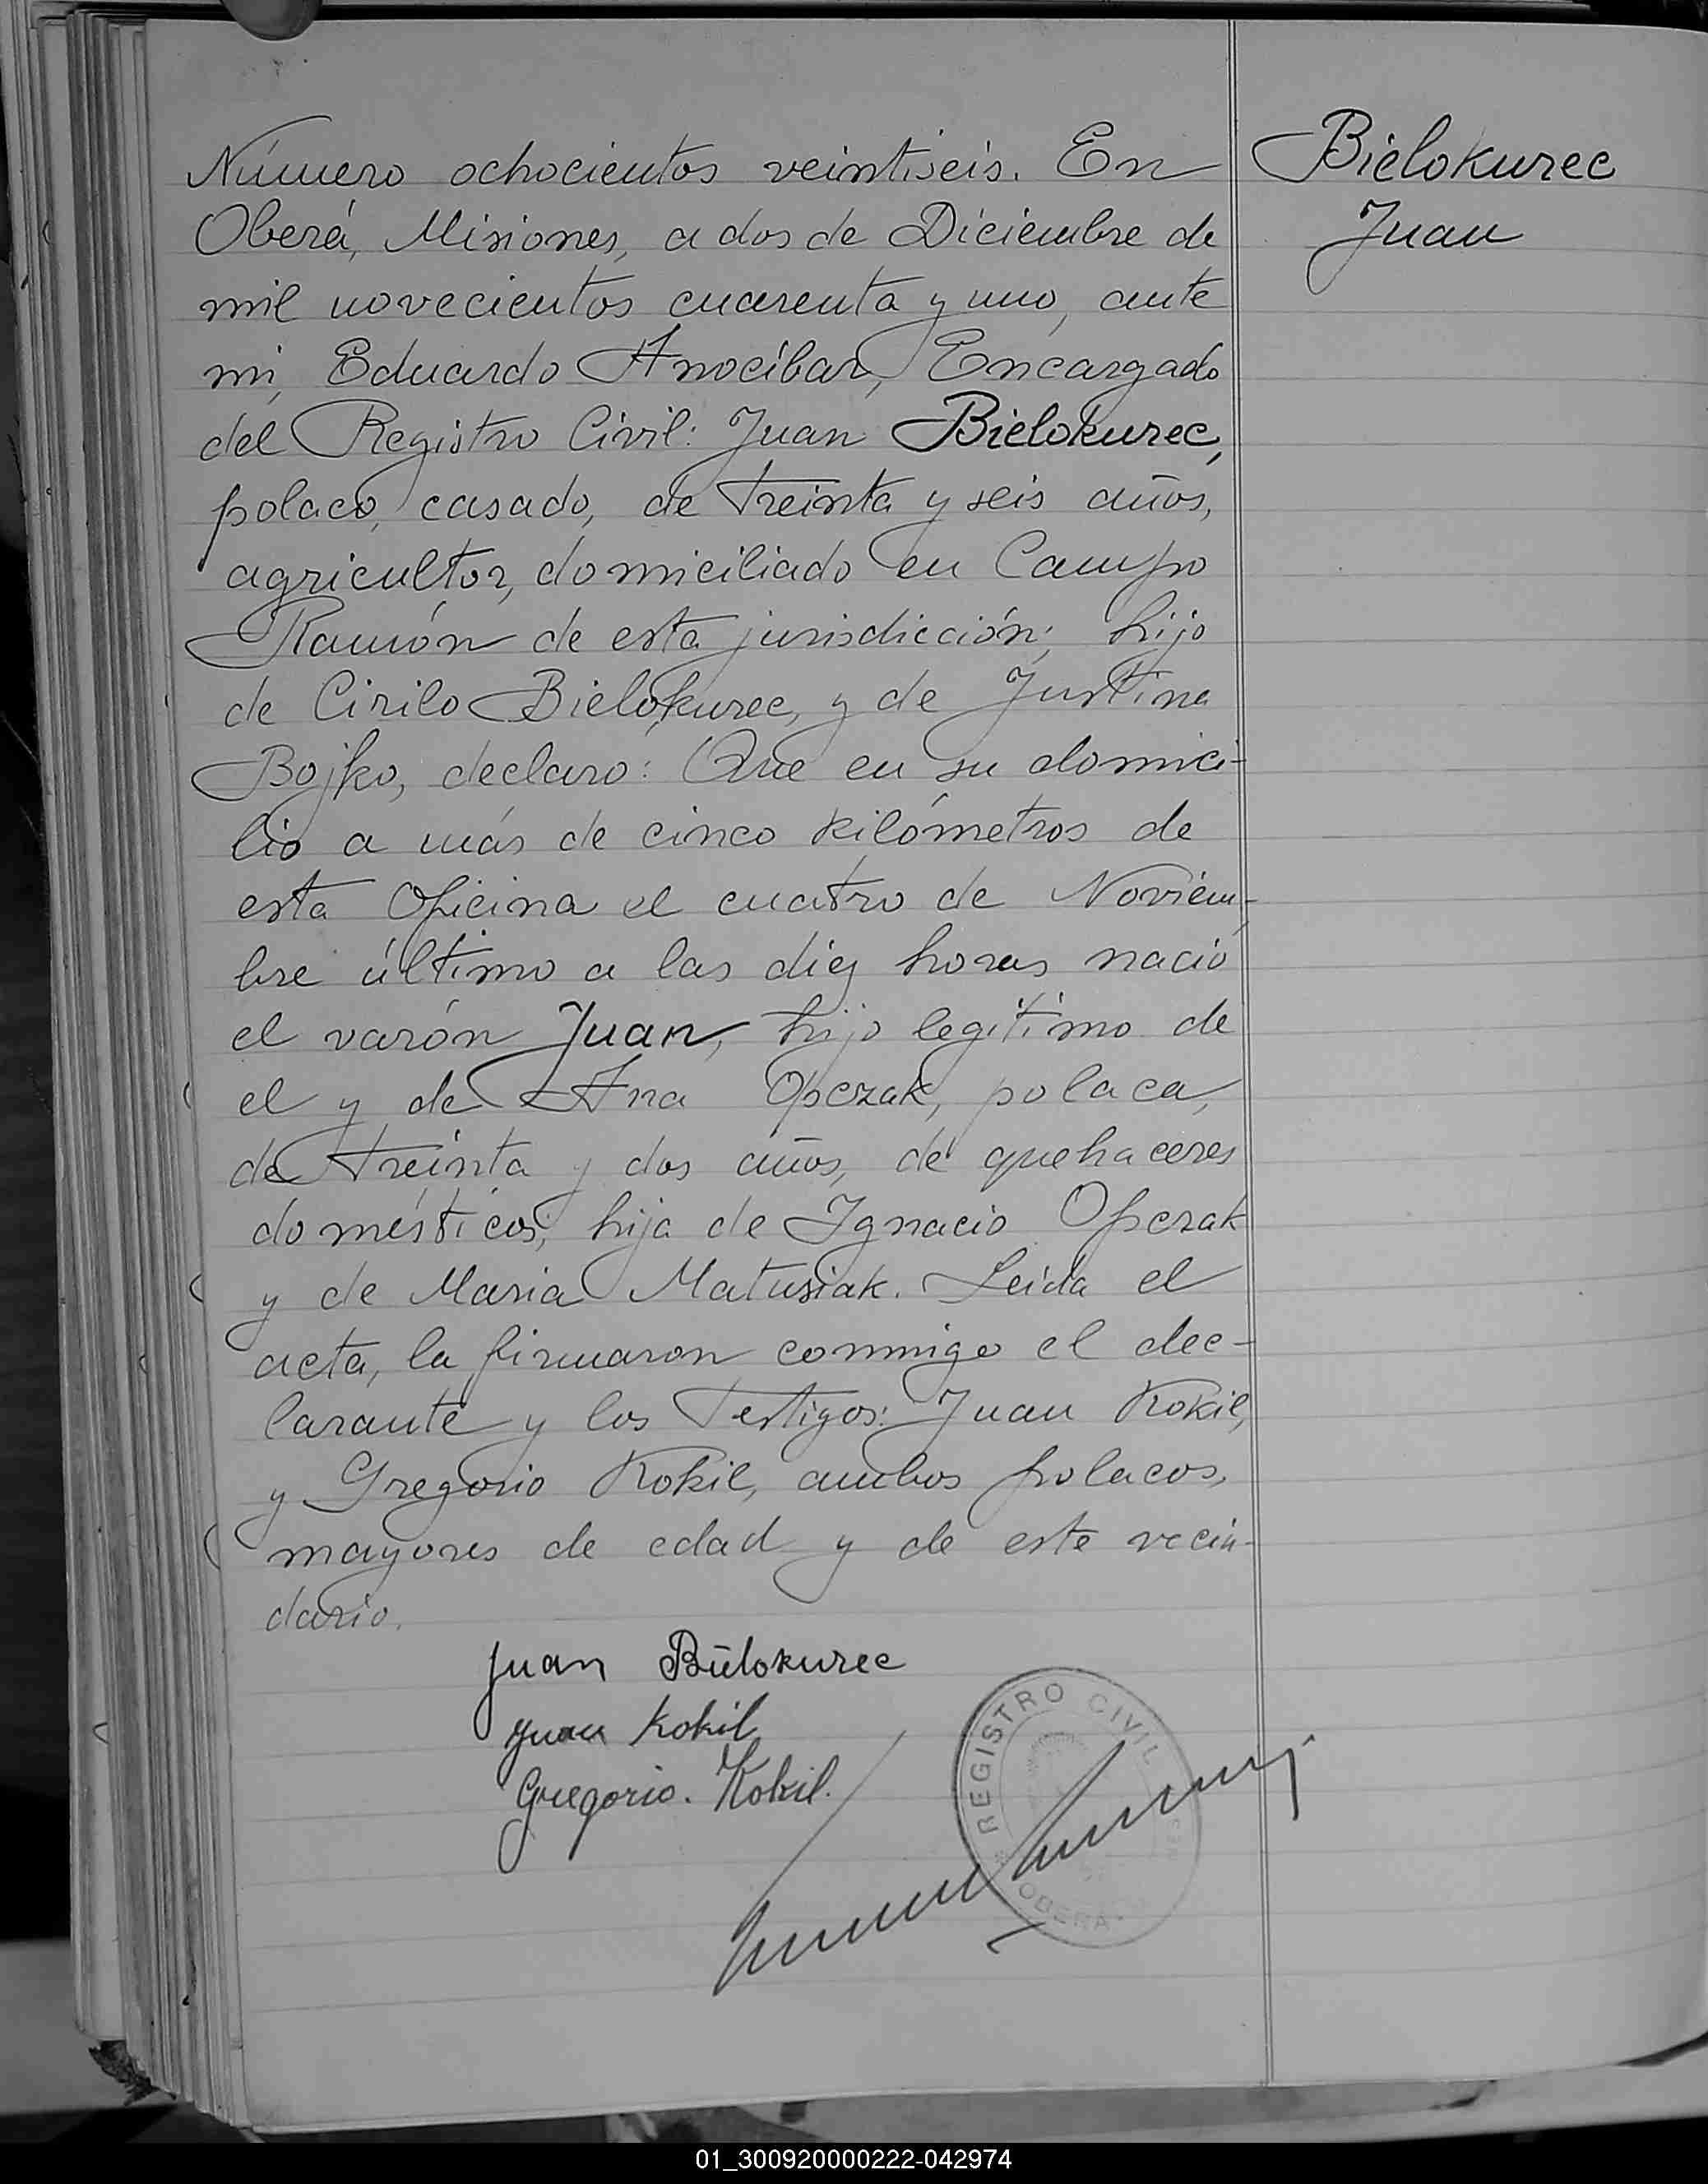 Número ochocientos veintiseis. En
Oberá, Misiones, a dos de Diciembre de
mil novecientos cuarenta y uno, ante
mi, Eduardo Anocibar, Encargado
del Registro Civil: Juan Bielokurec,
polaco, casado, de treinta y seis años,
agricultor, domiciliado en Campo
Ramón de esta jurisdicción; hijo
de Cirilo Bielokurec, y de Justina
Bojko, declaro: Que en su domici-
lio a más de cinco kilómetros de
esta Oficina el cuatro de Noviem-
bre último a las diez horas nació
el varón Juan, hijo legítimo de
el y de Ana Opczak, polaca,
de treinta y dos años, de quehaceres
domésticos; hija de Ignacio Opczak
y de Maria Matusiak. Leida el
acta, la firmaron conmigo el dec-
larante y los Testigos: Juan Kokil,
y Gregorio Kokil, ambos polacos,
mayores de edad y de este vecin-
dario.
Bielokurec
Juan
Juan Bielokurec
Juan Kokil
Gregorio. Kokil.
REGISTRO CIVIL
OBERA
01_300920000222-042974